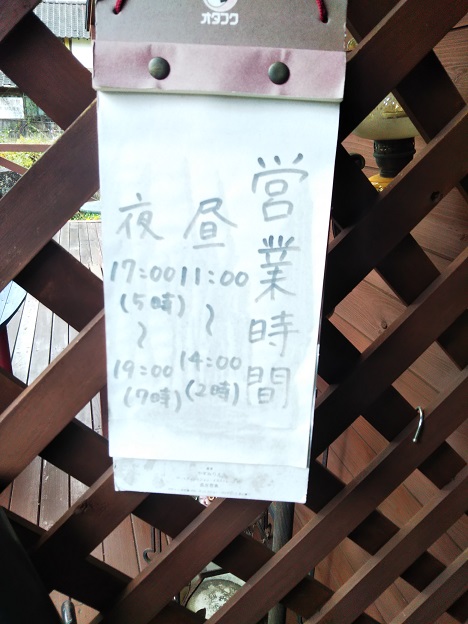 オタフク
営業時間
昼
11:00
〜
14:00
(2時)
夜
17:00
(5時)
〜
19:00
(7時)